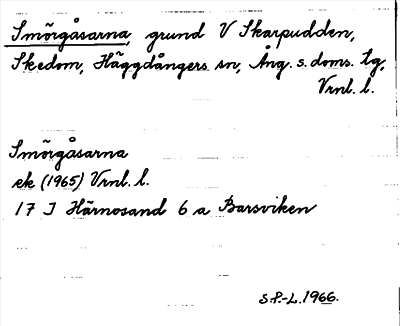 Smörgåsarna, grund V Skarpudden,
Skedom, Häggdångers sn, Ång. s. doms. tg,
Vrnl. l.
Smörgåsarna
ek (1965) Vrnl. l.
17 I Härnosand 6 a Barsviken
S.P.-L. 1966.